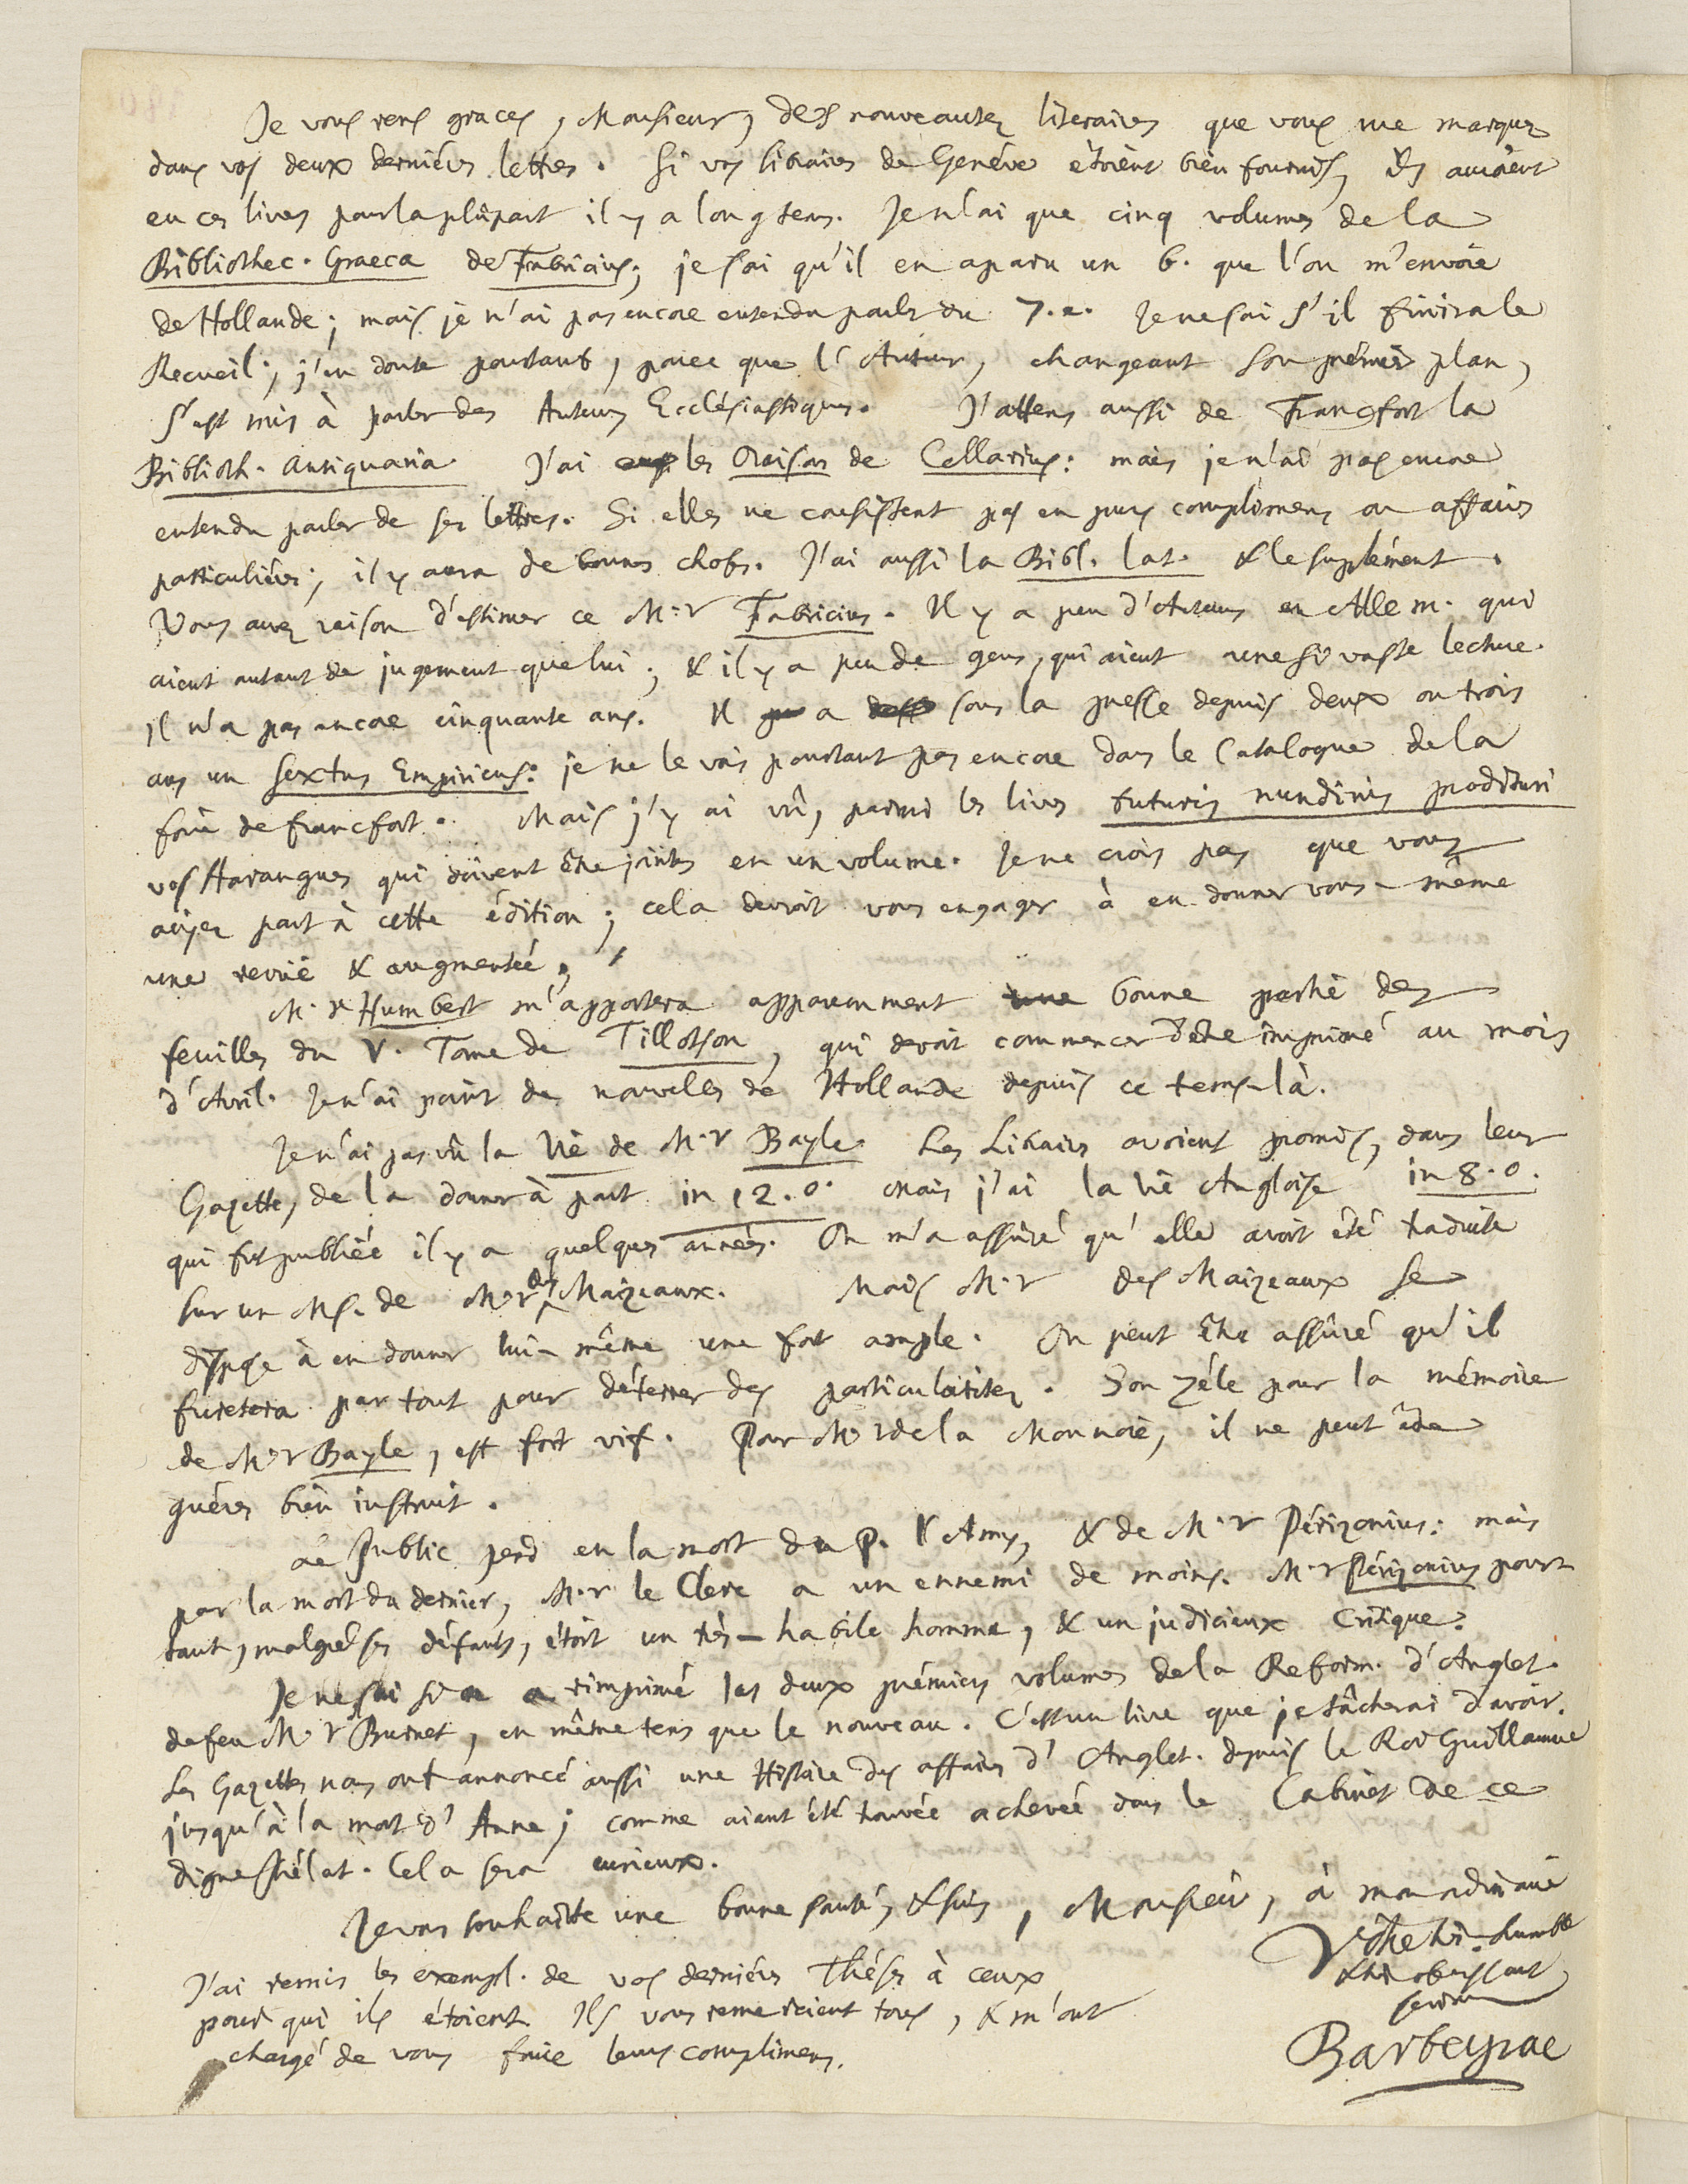 Je vous rens graces, Monsieur, des nouveautez literaires que vous me marquez
dans vos deux derniéres lettres. Si vos libraires de Genéve étoient bien fournis, ils auroient
eu ces livres pour la plûpart il y a long tems. Je n'ai que cinq volumes de la
Bibliothec. Graeca de Fabricius; je sai qu'il en a paru un 6. que l'on m'envoie
de Hollande; mais je n'ai pas encore entendu parler du 7.e. Je ne sai s'il finira le
Recueil; j'en doute pourtant, parce que l'Auteur, changeant son prémier plan,
s'est mis à parler des Auteurs Ecclésiastiques. J'attens aussi de Francfort la
Biblioth. Antiquaria. J'ai les Oraisons de Cellarius: mais je n'ai pas encore
entendu parler de ses lettres. Si elles ne consistent pas en purs complimens ou affaires
particuliéres; il y aura de bonnes choses. J'ai aussi la Bibl. lat. & le suplément.
Vous avez raison d'estimer ce M.r Fabricius. Il y a peu d'Auteurs en Allem. qui
aient autant de jugement que lui; & il y a peu de gens, qui aient une si vaste lecture.
Il n'a pas encore cinquante ans. Il a sous la presse depuis deux ou trois
ans un Sextus Empiricus: je ne le vois pourtant pas encore dans le Catalogue de la
foire de francfort. Mais j'y ai vû, parmi les livres futuris nundinis prodituri
vos Harangues qui doivent être jointes en un volume. Je ne crois pas que vous
aiyez part à cette édition; cela devroit vous engager à en donner vous-même
une revuë & augmentée.
M.r Humbert m'apportera apparemment une bonne partie des
feuilles du V. Tome de Tillotson, qui devoit commencer d'être imprimé au mois
d'Avril. Je n'ai point de nouvelles de Hollande depuis ce tems-là.
Je n'ai pas vû la Vie de M.r Bayle. Les Libraires avoient promis, dans leur
Gazette, de la donner à part in 12.o. Mais j'ai la Vie Angloise in 8.o.
qui fut publiée il y a quelques années. On m'a assûré qu'elle avoit été traduite
sur un Ms. de M.r des Maizeaux. Mais M.r des Maizeaux se
dispose à en donner lui-même une fort ample. On peut être assûré qu'il
furetera par tout pour déterrer des particularitez. Son zéle pour la mémoire
de M.r Bayle, est fort vif. Pour M.r de la Monnoie, il ne peut être
guéres bien instruit.
Le Public perd en la mort du P. l'Amy, & de M.r Périzonius: mais
par la mort du dernier, M.r le Clerc a un ennemi de moins. M.r Périzonius pour-
tant, malgré ses défauts, étoit un très-habile homme, & un judicieux Critique.
Je ne sai si on a rimprimé les deux prémiers volumes de la Reform. d'Anglet.
de feu M.r Burnet, en même tems que le nouveau. C'est un livre que je tâcherai d'avoir.
Les Gazettes nous ont annoncé aussi une Histoire des affaires d'Anglet. depuis le Roi Guillaume
jusqu'à la mort d'Anne; comme aiant été trouvée achevée dans le Cabinet de ce
digne Prélat. Cela sera curieux.
Je vous souhaitte une bonne santé, & suis, Monsieur, à mon ordinaire
Vôtre très-humble
& très obeissant
serviteur
Barbeyrac
J'ai remis les exempl. de vos derniéres Théses à ceux
pour qui ils étoient. Ils vous remercient tous, & m'ont
chargé de vous faire leurs complimens.